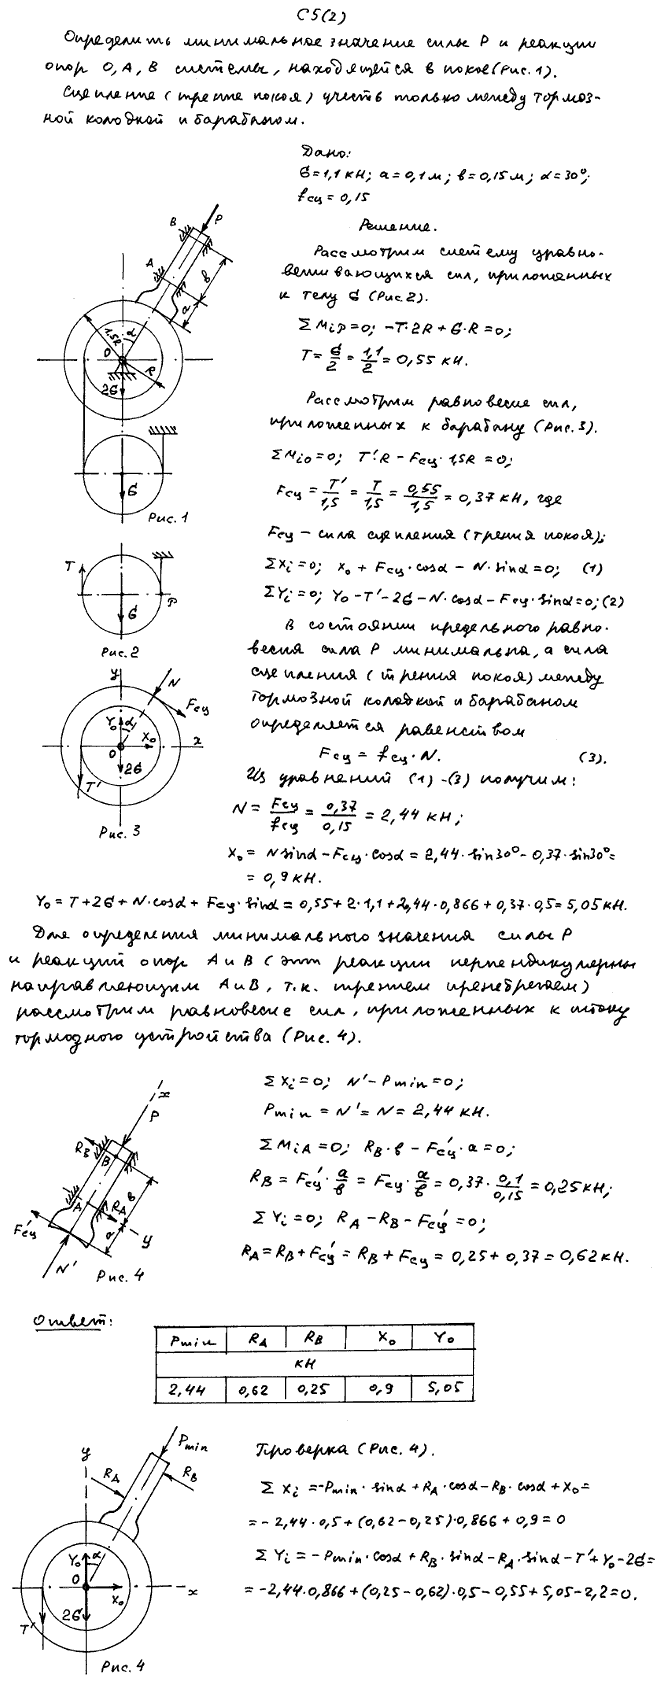 С5(2)
Определить минимальное значение силы P и реакции
опор O, A, B системы, находящейся в покое (Рис. 1).
Сцепление (трение покоя) учесть только между тормоз-
ной колодкой и барабаном.
Дано:
G=1,1 кН; a=0,1 м; b=0,15 м; α=30°;
fсц=0,15
Решение.
Рассмотрим систему уравно-
вешивающихся сил, приложенных
к телу G (Рис 2).
ΣMiP=0; -T·2R+G·R=0;
T=G/2=1,1/2=0,55 кН.
Рассмотрим равновесие сил,
приложенных к барабану (Рис. 3).
ΣMiO=0; T'·R-Fсц·1,5R=0;
Fсц=T'/1,5=T/1,5=0,55/1,5=0,37 кН, где
Fсц - сила сцепления (трения покоя);
ΣXi=0; Xo+Fсц·cosα-N·sinα=0; (1)
ΣYi=0; Yo-T'-2G-N·cosα-Fсц·sinα=0; (2)
В состоянии предельного равно-
весия сила P минимальна, а сила
сцепления (трения покоя) между
тормозной колодкой и барабаном
определяется равенством
Fсц=fсц·N. (3).
Из уравнений (1)-(3) получим:
N=Fсц/fсц=0,37/0,15=2,44 кН;
Xo=Nsinα-Fсц·cosα=2,44·sin30°-0,37·sin30°=
=0,9 кН.
Yo=T+2G+N·cosα+Fсц·sinα=0,55+2·1,1+2,44·0,866+0,37·0,5=5,05 кН.
B
P
A
b
a
1,5R
α
O
R
2G
G
Рис. 1
T
P
G
Рис. 2
y
N
Fсц
Yo
α
Xo
x
O
2G
T'
Рис. 3
Для определения минимального значения силы P
и реакций опор A и B (эти реакции перпендикулярны
направляющим A и B, т.к. трением пренебрегаем)
рассмотрим равновесие сил, приложенных к штоку
тормозного устройства (Рис. 4).
x
P
RB
B
A
RA
b
a
y
F'сц
N'
Рис. 4
ΣXi=0; N'-Pmin=0;
Pmin=N'=N=2,44 кН.
ΣMiA=0; RB·b-F'сц·a=0;
RB=F'сц·a/b=Fсц·a/b=0,37·0,1/0,15=0,25 кН;
ΣYi=0; RA-RB-F'сц=0;
RA=RB+F'сц=RB+Fсц=0,25+0,37=0,62 кН.
Ответ:
Pmin RA RB Xo Yo
кН
2,44 0,62 0,25 0,9 5,05
y
Pmin
RA
RB
Yo
α
O
Xo
x
2G
T'
Рис. 4
Проверка (Рис. 4).
ΣXi=-Pmin·sinα+RA·cosα-RB·cosα+Xo=
=-2,44·0,5+(0,62-0,25)·0,866+0,9=0
ΣYi=-Pmin·cosα+RB·sinα-RA·sinα-T'+Yo-2G=
=-2,44·0,866+(0,25-0,62)·0,5-0,55+5,05-2,2=0.